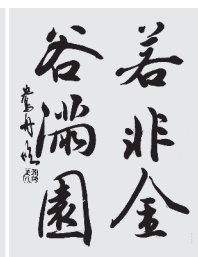 若非金
谷滿園